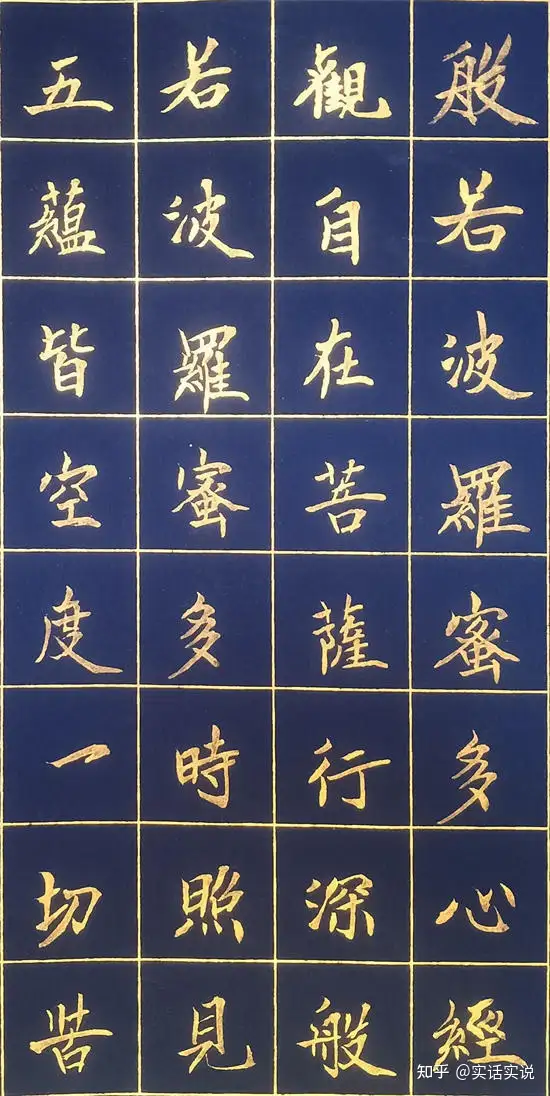 般若波羅蜜多心經
觀自在菩薩行深般
若波羅蜜多時照見
五蘊皆空度一切苦
知乎 @实话实说